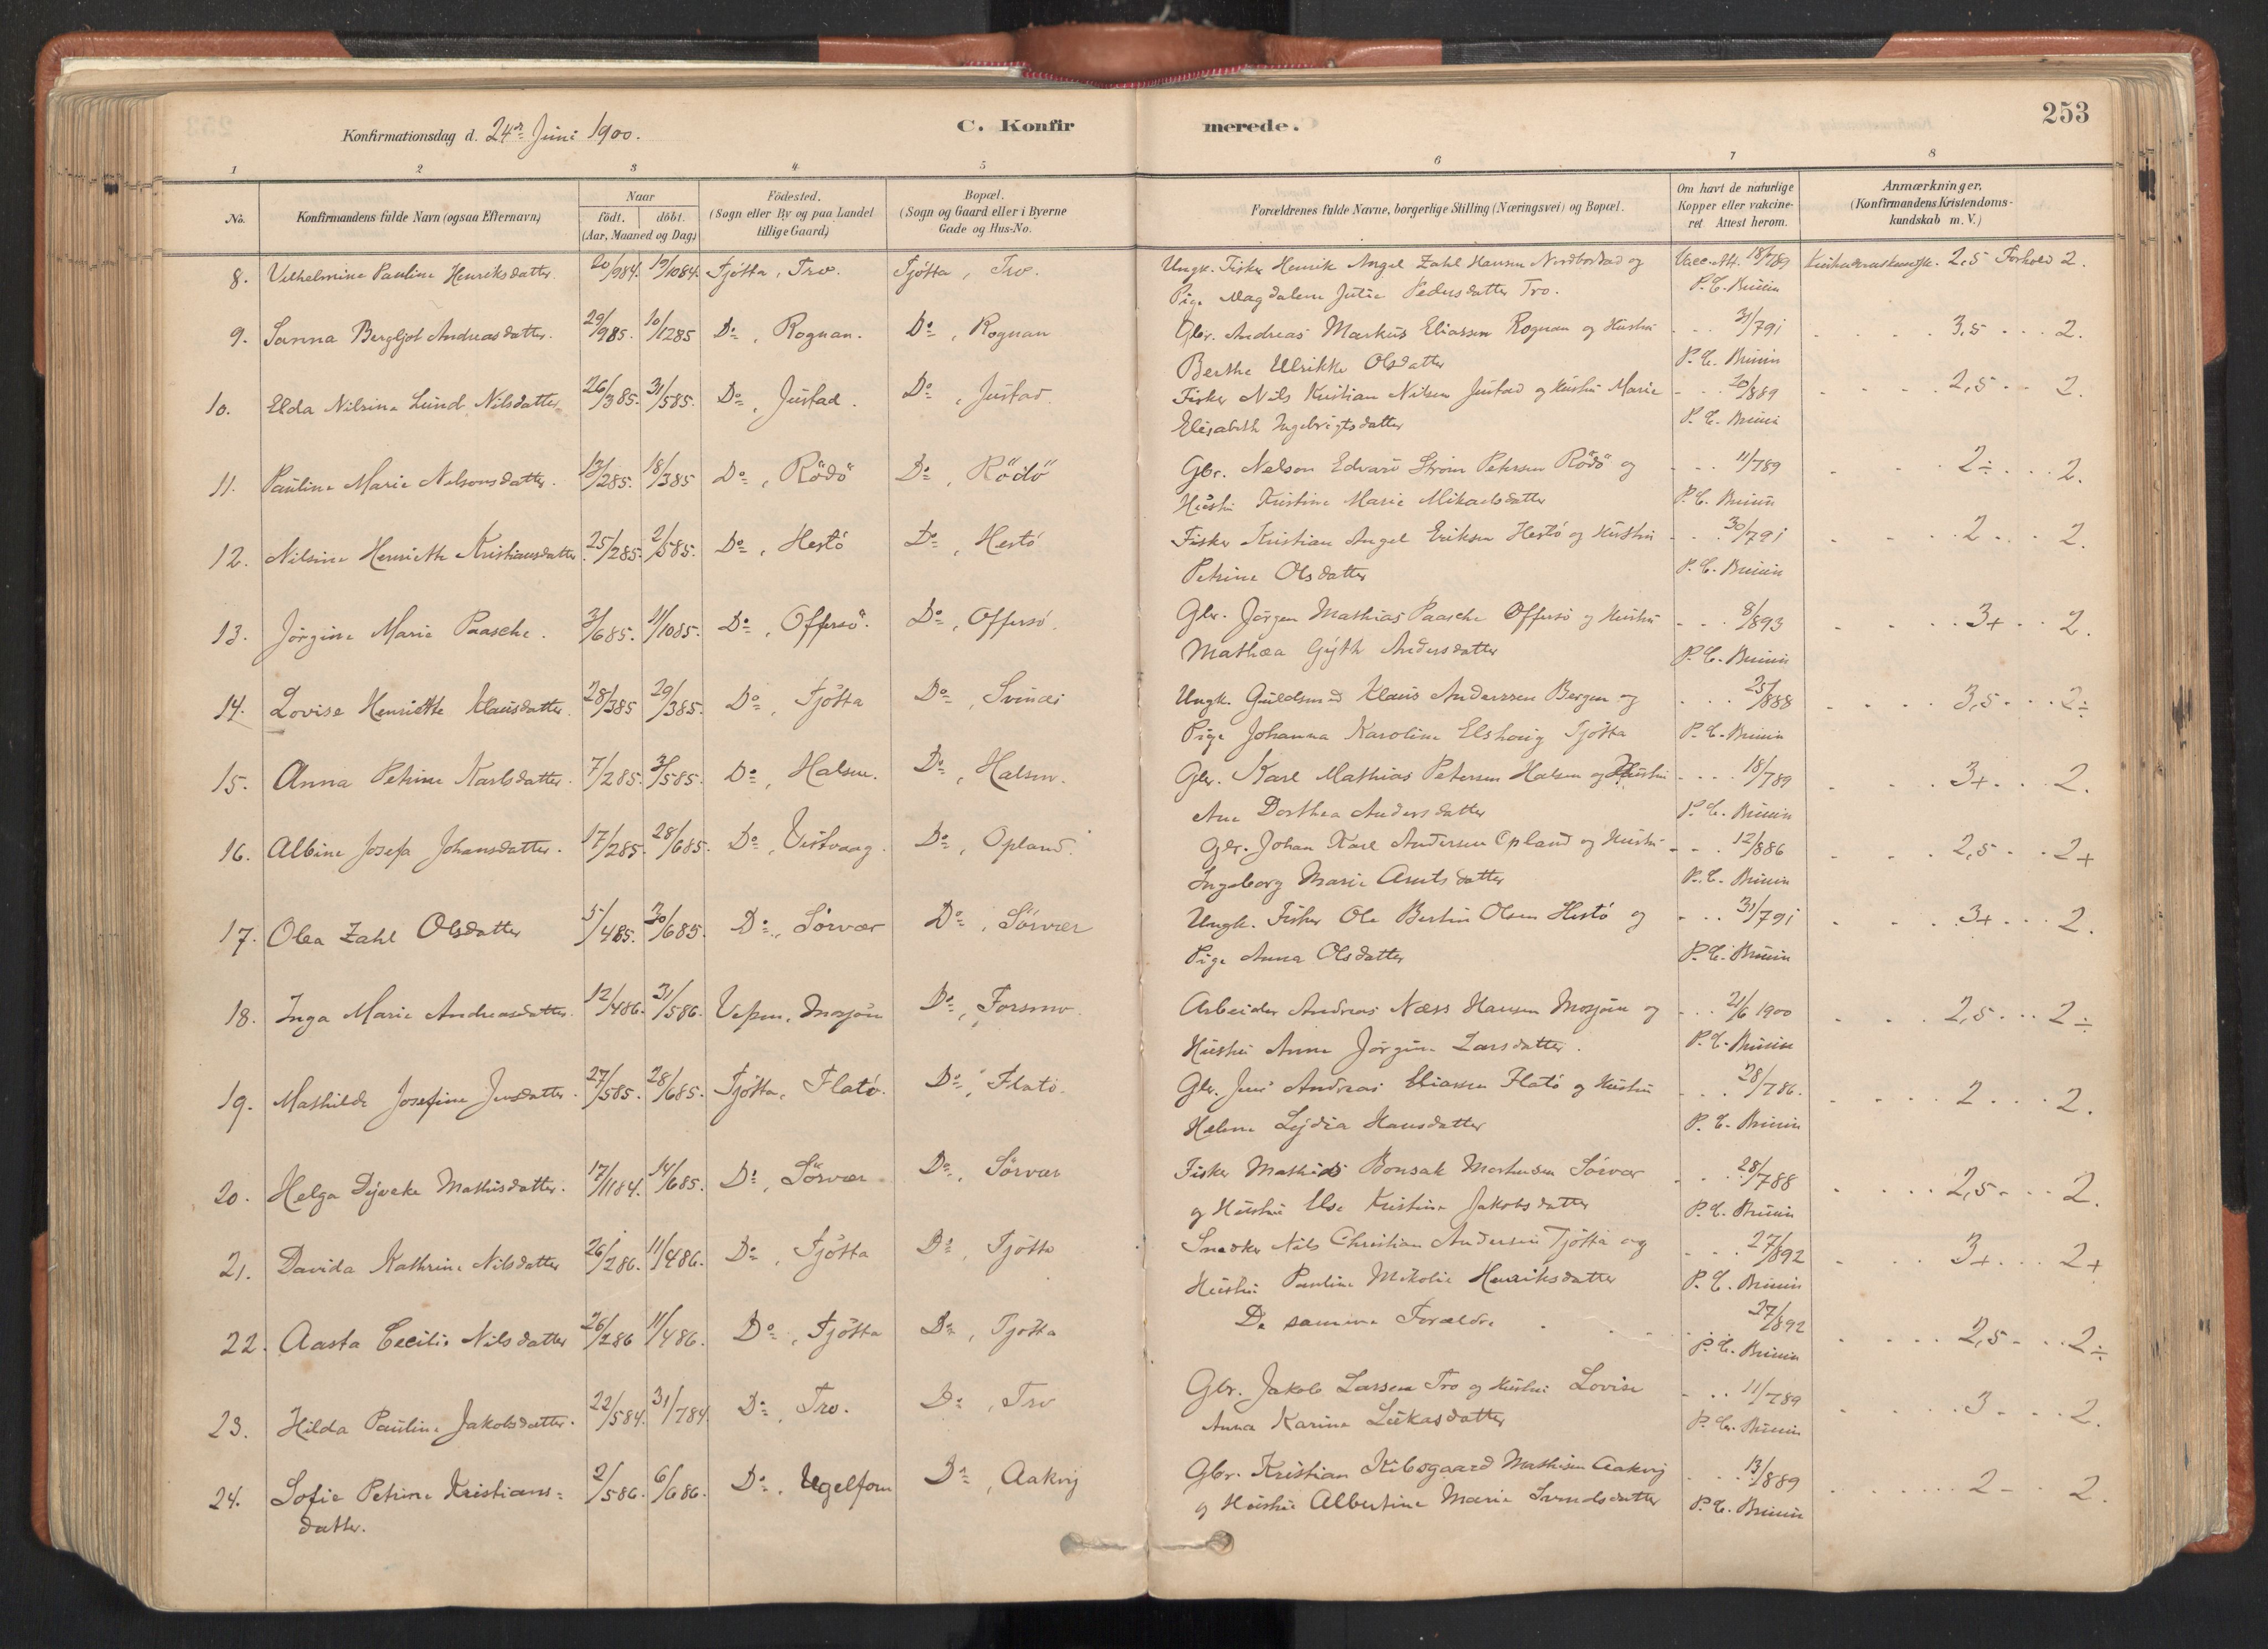 253
Konfirmationsdag d. 24de Juni 1900.
C. Konfirmerede.
1 2 3 4 5 6 7 8
No.
Konfirmandens fulde Navn (ogsaa Efternavn)
Naar
födt. döbt.
(Aar, Maaned og Dag)
Födested.
(Sogn eller By og paa Landet
tillige Gaard)
Bopæl.
(Sogn og Gaard eller i Byerne
Gade og Hus-No.
Forældrenes fulde Navne, borgerlige Stilling (Næringsvei) og Bopæl.
Om havt de naturlige
Kopper eller vakcine-
ret Attest herom.
Anmærkninger.
(Konfirmandens Kristendoms-
kundskab m. V.)
8. Vilhelmine Pauline Henriksdatter. 20/984. 19/1084. Tjötta, Tro. Tjötta, Tro. Ungk. Fisker Henrik Angel Zahl Hansen Nordbostad og Vacc. Att. 18/789 2,5 Forhold 2.
Pige Magdalene Jutia Pedersdatter Tro. P. C. Bruun
9. Sanna Bergljot Andreasdatter. 29/985. 10/1285 Do, Rognan. Do, Rognan Gbr. Andreas Markus Eliassen Rognan og Hustru 31/791 3,5 2.
Berthe Ulrikke Olsdatter P. C. Bruun
10. Elda Nilsine Lund Nilsdatter 26/385. 31/585. Do, Justad. Do, Justad. Fisker Nils Kristian Nilsen Justad og Hustru Marie 20/889 2,5 2.
Elisabeth Ingebrigtsdatter P. C. Bruun
11. Pauline Marie Nelsonsdatter. 13/285. 18/385 Do, Rödö Do, Rödö Gbr. Nelson Edvard Ström Petersen Rödö og 11/789 2÷ 2.
Hustru Kristine Marie Mikaelsdatter P. C. Bruun
12. Nilsine Henriette Kristiansdatter. 25/285. 2/585. Do, Hestö Do, Hestö Fisker Kristian Angel Eriksen Hestö og Hustru 30/791 2 2.
Petrine Olsdatter P. C. Bruun
13. Jörgine Marie Paasche. 3/685. 11/1085. Do, Offersö. Do, Offersö. Gbr. Jörgen Mathias Paasche Offersö og Hustru 8/893 3+ 2.
Mathea Gjyth Andersdatter P. C. Bruun
14. Lovise Henriette Klausdatter. 28/385 29/385. Do, Tjötta Do, Svines Ungk. Guldsmed Klaus Anderssen Bergen og 25/888 3,5 2÷
Pige Johanna Karoline Elshoug Tjötta P. C. Bruun
15. Anna Petrine Karlsdatter. 7/285. 31/585. Do, Halsen. Do, Halsen. Gbr. Karl Mathias Petersen Halsen og Hustru 18/789 3+ 2.
Ane Dorthea Andersdatter P. C. Bruun
16. Albine Josefa Johansdatter. 17/285. 28/685. Do, Vistvaag. Do, Opland. Gbr. Johan Karl Andersen Opland og Hustru 12/886 2,5 2+
Ingeborg Marie Arntsdatter P. C. Bruun
17. Olea Zahl Olsdatter 5/485. 30/685. Do, Sörvær Do, Sörvær Ungk. Fisker Ole Bertin Olsen Hestö og 31/791 3+ 2.
Pige Anna Olsdatter P. C. Bruun
18. Inga Marie Andreasdatter. 12/486. 31/586. Vefsen, Mosjöen Do, Forsmo. Arbeider Andreas Næss Hansen Mosjöen og 21/6 1900 2,5 2÷
Hustru Anne Jörgine Larsdatter. P. C. Bruun
19. Mathilde Josefine Jensdatter. 27/585. 28/685. Tjötta, Flatö. Do, Flatö. Gbr. Jens Andreas Eliassen Flatö og Hustru 28/786. 2 2.
Helene Lydia Hansdatter P. C. Bruun
20. Helga Dyveke Mathisdatter. 17/1184. 14/685. Do, Sörvær Do, Sörvær Fisker Mathias Bonsak Mortensen Sörvær 28/788 2,5 2.
og Hustru Else Kristine Jakobsdatter P. C. Bruun
21. Davida Kathrine Nilsdatter 26/286. 11/486. Do, Tjötta Do, Tjötta Snedker Nils Christian Andersen Tjötta og 27/892 3+ 2+
Hustru Pauline Mikolie Henriksdatter P. C. Bruun
22. Aasta Cecilie Nilsdatter 26/286 11/486. Do, Tjötta Do, Tjötta De samme Forældre 27/892 2,5 2÷
P. C. Bruun
23. Hilda Pauline Jakobsdatter. 22/584. 31/784. Do, Tro. Do, Tro Gbr. Jakob Larssen Tro og Hustru Lovise 11/789 3 2.
Anna Karina Lukasdatter P. C. Bruun
24. Sofie Petrine Kristians= 2/586. 6/686. Do, Ugelforn Do, Aakvig Gbr. Kristian Kibsgaard Mathisen Aakvig 13/889 2 2.
datter. og Hustru Albertine Marie Svendsdatter P. C. Bruun